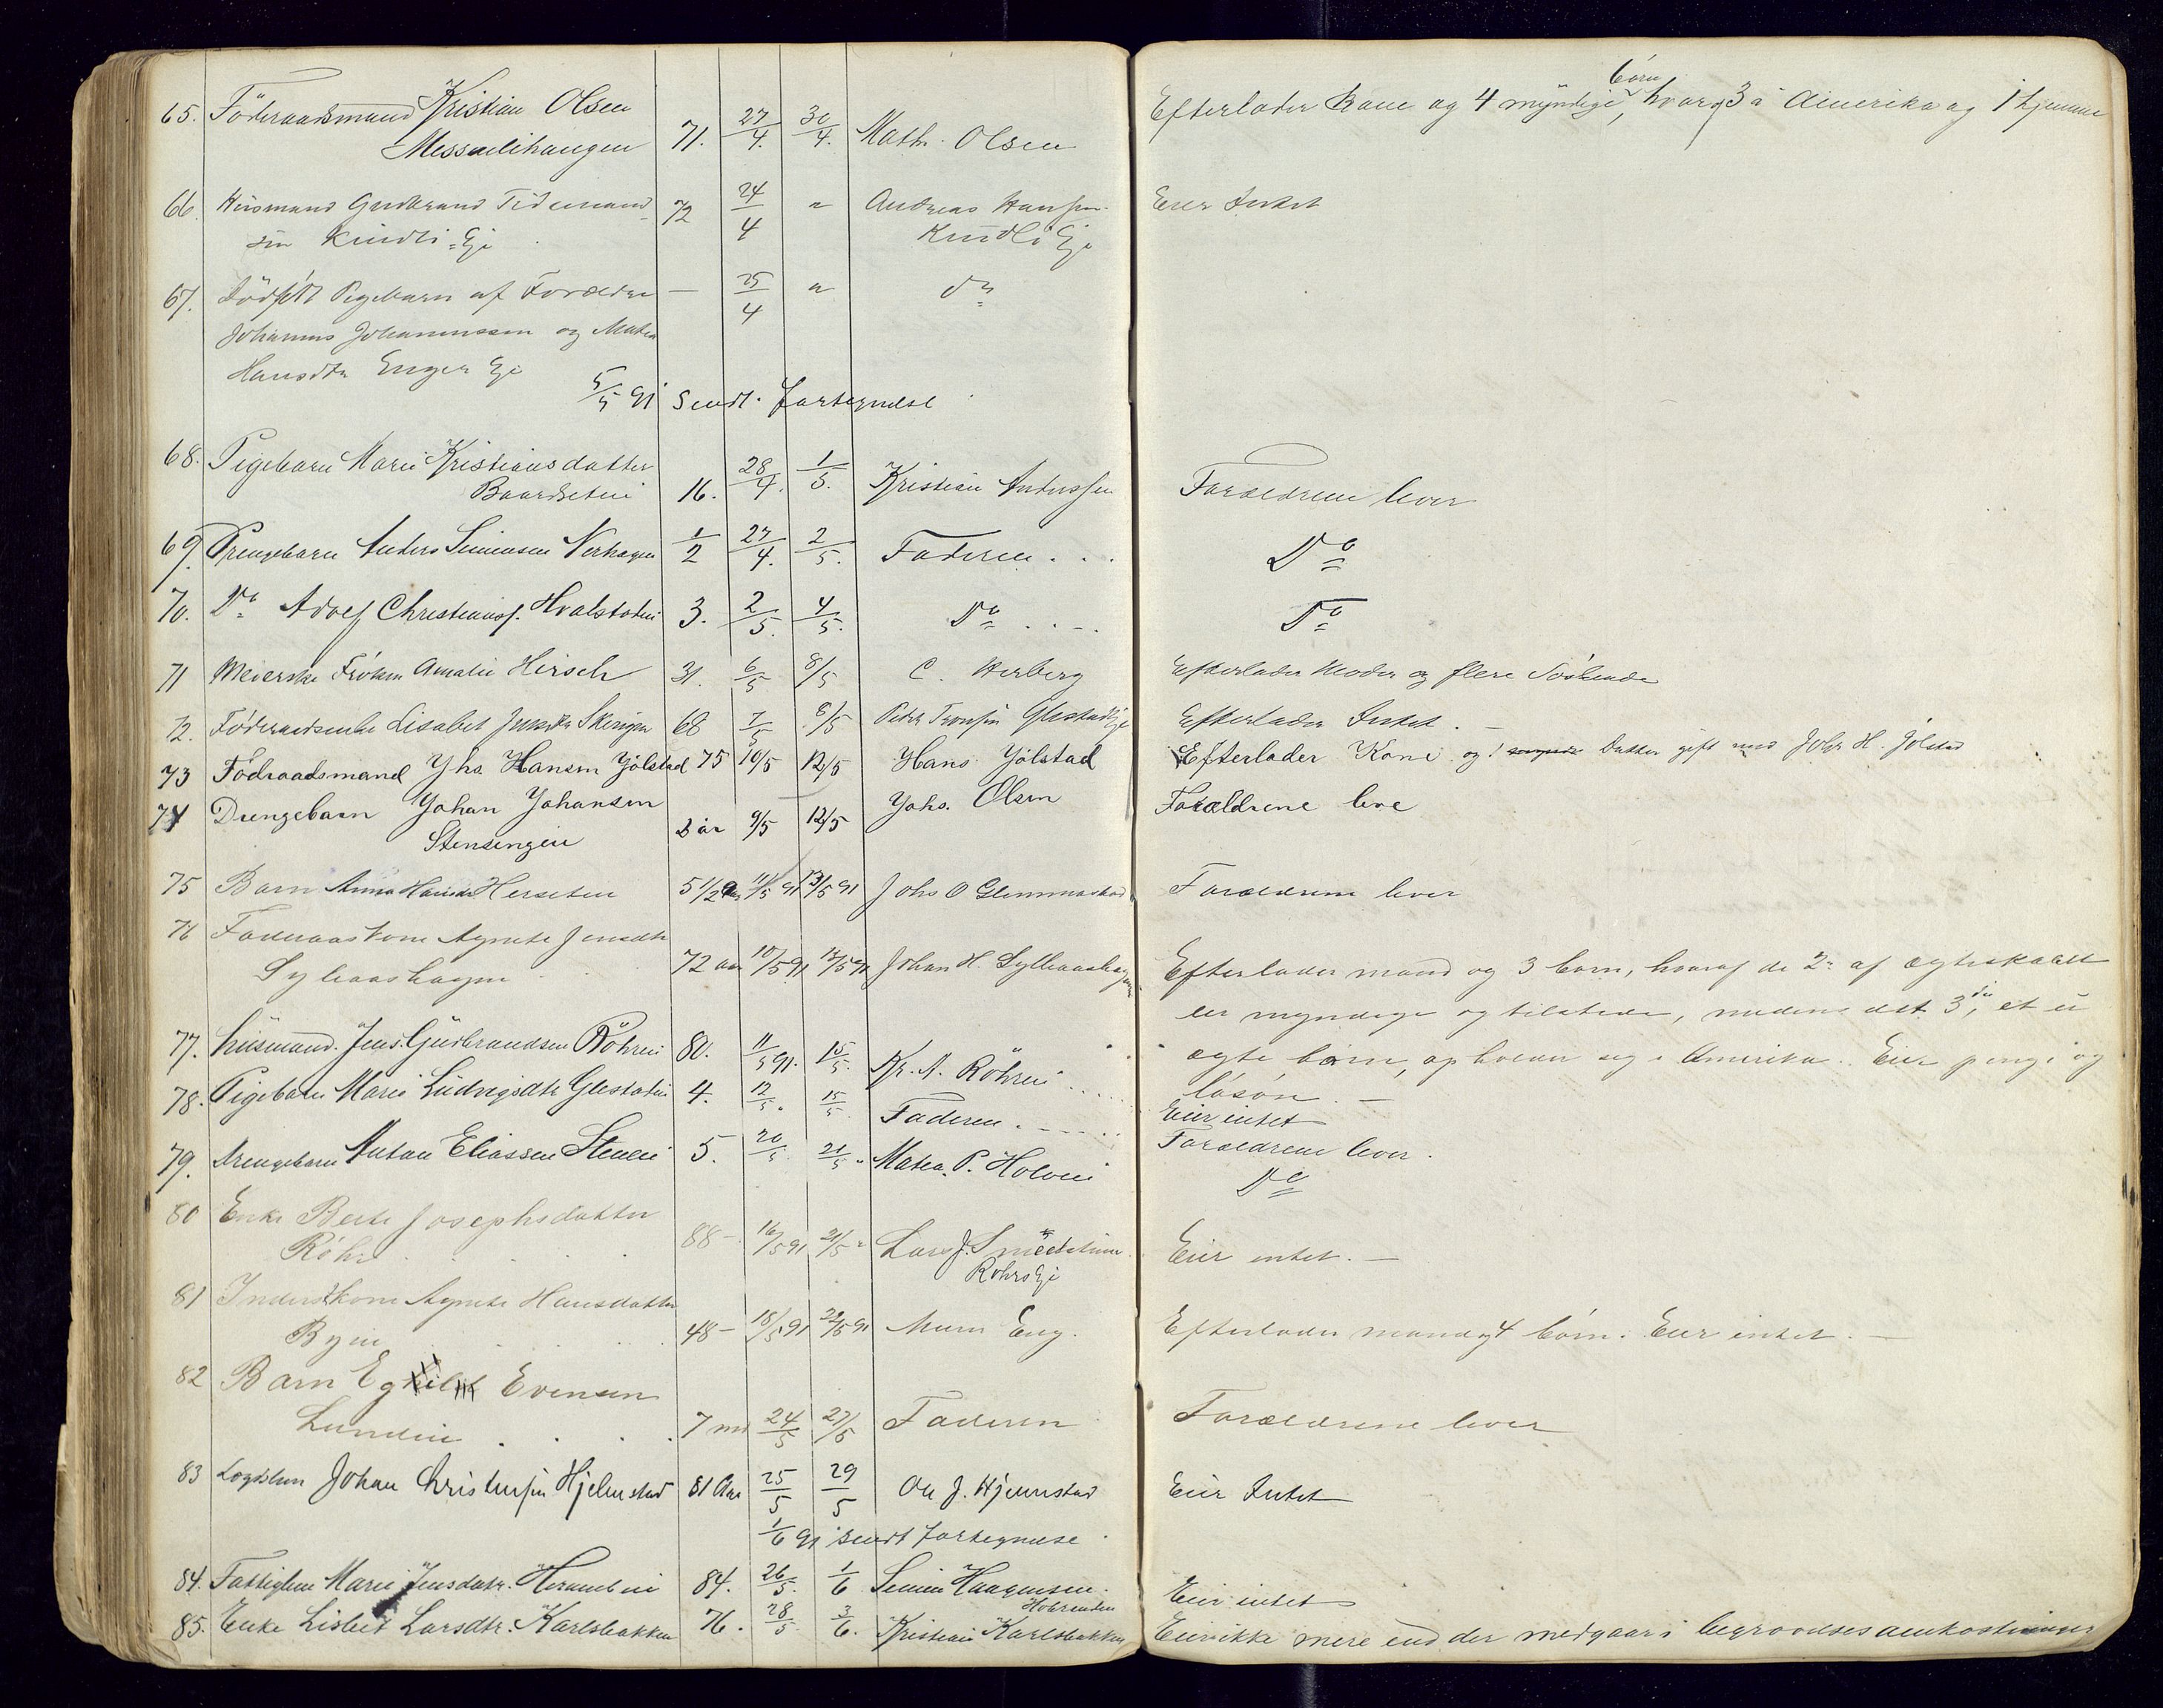 65. Föderaadsmand Kristian Olsen
Messelihaugen 71. 27/4. 30/4. Math. Olsen
Efterlader Kone og 4 myndige börn, hvoraf 3 i Amerika og 1 hjemme
66. Husmand Gudbrand Tidemand
sen Kindli Eje 72 24/4 " Andreas Hansen
Kindli Eje
Eier Intet
67. Dödfödt Pigebarn af Forældre — 25/4 " do
Johannes Johannessen og Mathea
Hansdtr Enger Eje
5/5 91 Sendt fortegnelse
68. Pigebarn Marie Kristiansdatter
Baardseteie 16. 28/4. 1/5. Kristian Anderssen
Forældrene lever
69. Drengebarn Anders Simensen Nerhagen 1/2 27/4. 2/5. Faderen . . .
Do
70. Do Adolf Christiansf. Hvalstadeie 3. 2/5. 4/5. Do . . .
Do
71 Meierske Fröken Amalie Hirsch 31. 6/5 8/5 C. Herberg
Efterlader Moder og flere Söskende
72. Föderaadsenke Lisabet Jensdtr 68 7/5 8/5 Peder Glestad Eje
Efterlader Intet. —
73 Födraadsmand Johs. Hansen Jölstad 75 10/5 12/5 Hans Jölstad
Efterlader Kone og 1 Datter gift med Johs H. Jölstad
74 Drengebarn Johan Johansen
Stensengeie 8 år 9/5 12/5 Johs. Olsen
Forældrene leve
75 Barn Anna Hansdtr Herseteie 5 1/2 aar 11/5 91 13/5 91 Johs O Glemmestad
Forældrene lever
76 Föderaaskone Agnete Jensdtr
Sylliaashagen 72 aar 10/5 91 13/5 91 Johan H. Sylliaashagen
Efterlader mand og 3 børn, hvoraf de 2 af ægteskabet
er myndige og tilstede, medens det 3die, et u
ægte barn, opholder sig i Amerika. Eier penge og
løsøre. —
77. Husmand. Jens Gudbrandsen Röhreie 80. 11/5 91. 15/5. Kr. A. Röhreie . .
Eier intet
78. Pigebarn Marie Ludvigsdtr Glestadeie 4. 12/5. 15/5. Faderen. . . .
Forældrene lever.
79. Drengebarn Anton Eliassen Steneie 5. 20/5. 21/5. Mathea P. Holveie
Do
80 Enke Berte Josephsdatter
Röhr . . . 88 – 16/5 91 21/5 " Lars J. Smedstuen
Röhrs Eje
Eier intet. —
81 Inderstkone Agnete Hansdatter
Byeie . . . 48 – 18/5 91 22/5 91 Murer Eng.
Efterlader mand og 4 børn. Eier intet. —
82 Barn Egil Evensen
Lundeie . . . . 7 md 24/5 27/5 Faderen
Forældrene lever
83 Logslem Johan Christensen Hjelmstad 81 Aar 25/5 29/5 Ole J. Hjelmstad
Eier Intet
1/6 91 sendt Fortegnelse.
84. Fattiglem Marie Jensdatr. 84. 26/5. 1/6 Simen Haagensen.
Eier intet
85. Enke Lisbet Larsdtr. Karlsbakken 76. 28/5. 3/6. Kristian Karlsbakken
Eier ikke mere end der medgaar i begravelsesomkostninger